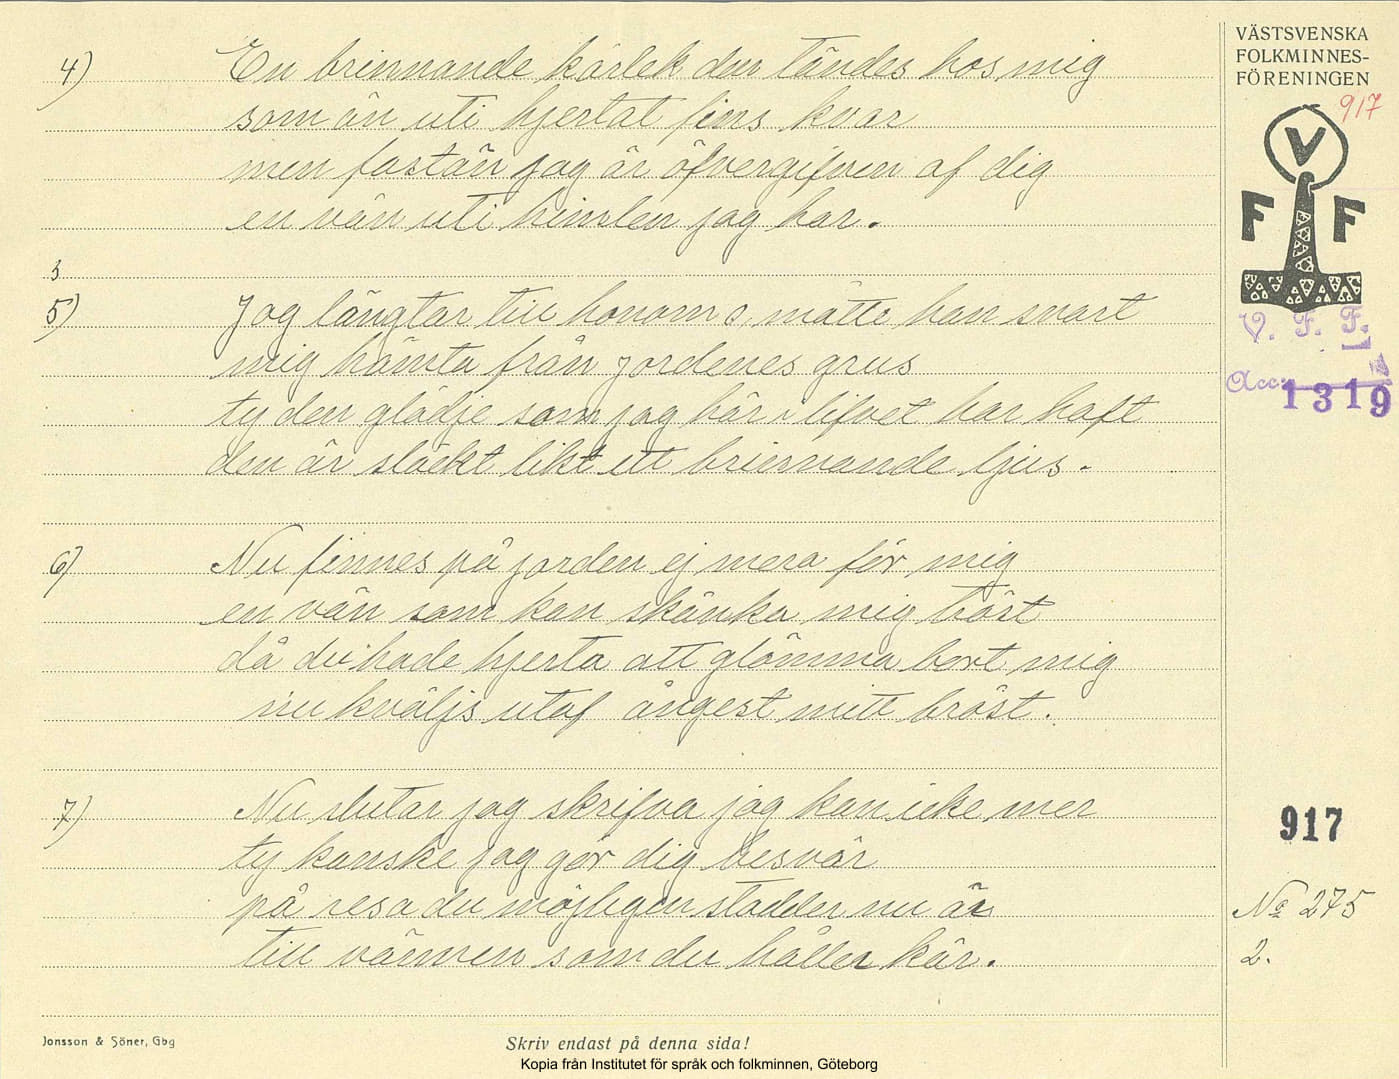 4) En brinnande kärlek den tändes hos mig
som än uti hjertat fins kvar
men fastän jag är öfvergifven af dig
en vän uti himlen jag har.
3
5) Jag längtar till honom o, måtte han snart
mig hämta från jordenes grus
ty den glädje som jag här i lifvet har haft
den är släckt likt ett brinnande ljus.
6) Nu finnes på jorden ej mera för mig
en vän som kan skänka mig tröst
då du hade hjerta att glömma bort mig
nu kväljs utaf ångest mitt bröst.
7) Nu slutar jag skrifva jag kan icke mer
ty kanske jag gör dig besvär
på resa du möjligen stadder nu är
till vännen som du håller kär.
Jonsson & Söner, Gbg
Skriv endast på denna sida!
Kopia från Institutet för språk och folkminnen, Göteborg
VÄSTSVENSKA
FOLKMINNES-
FÖRENINGEN
917
V
F F
V. F. F.
Acc. 1319
917
No 275
2.